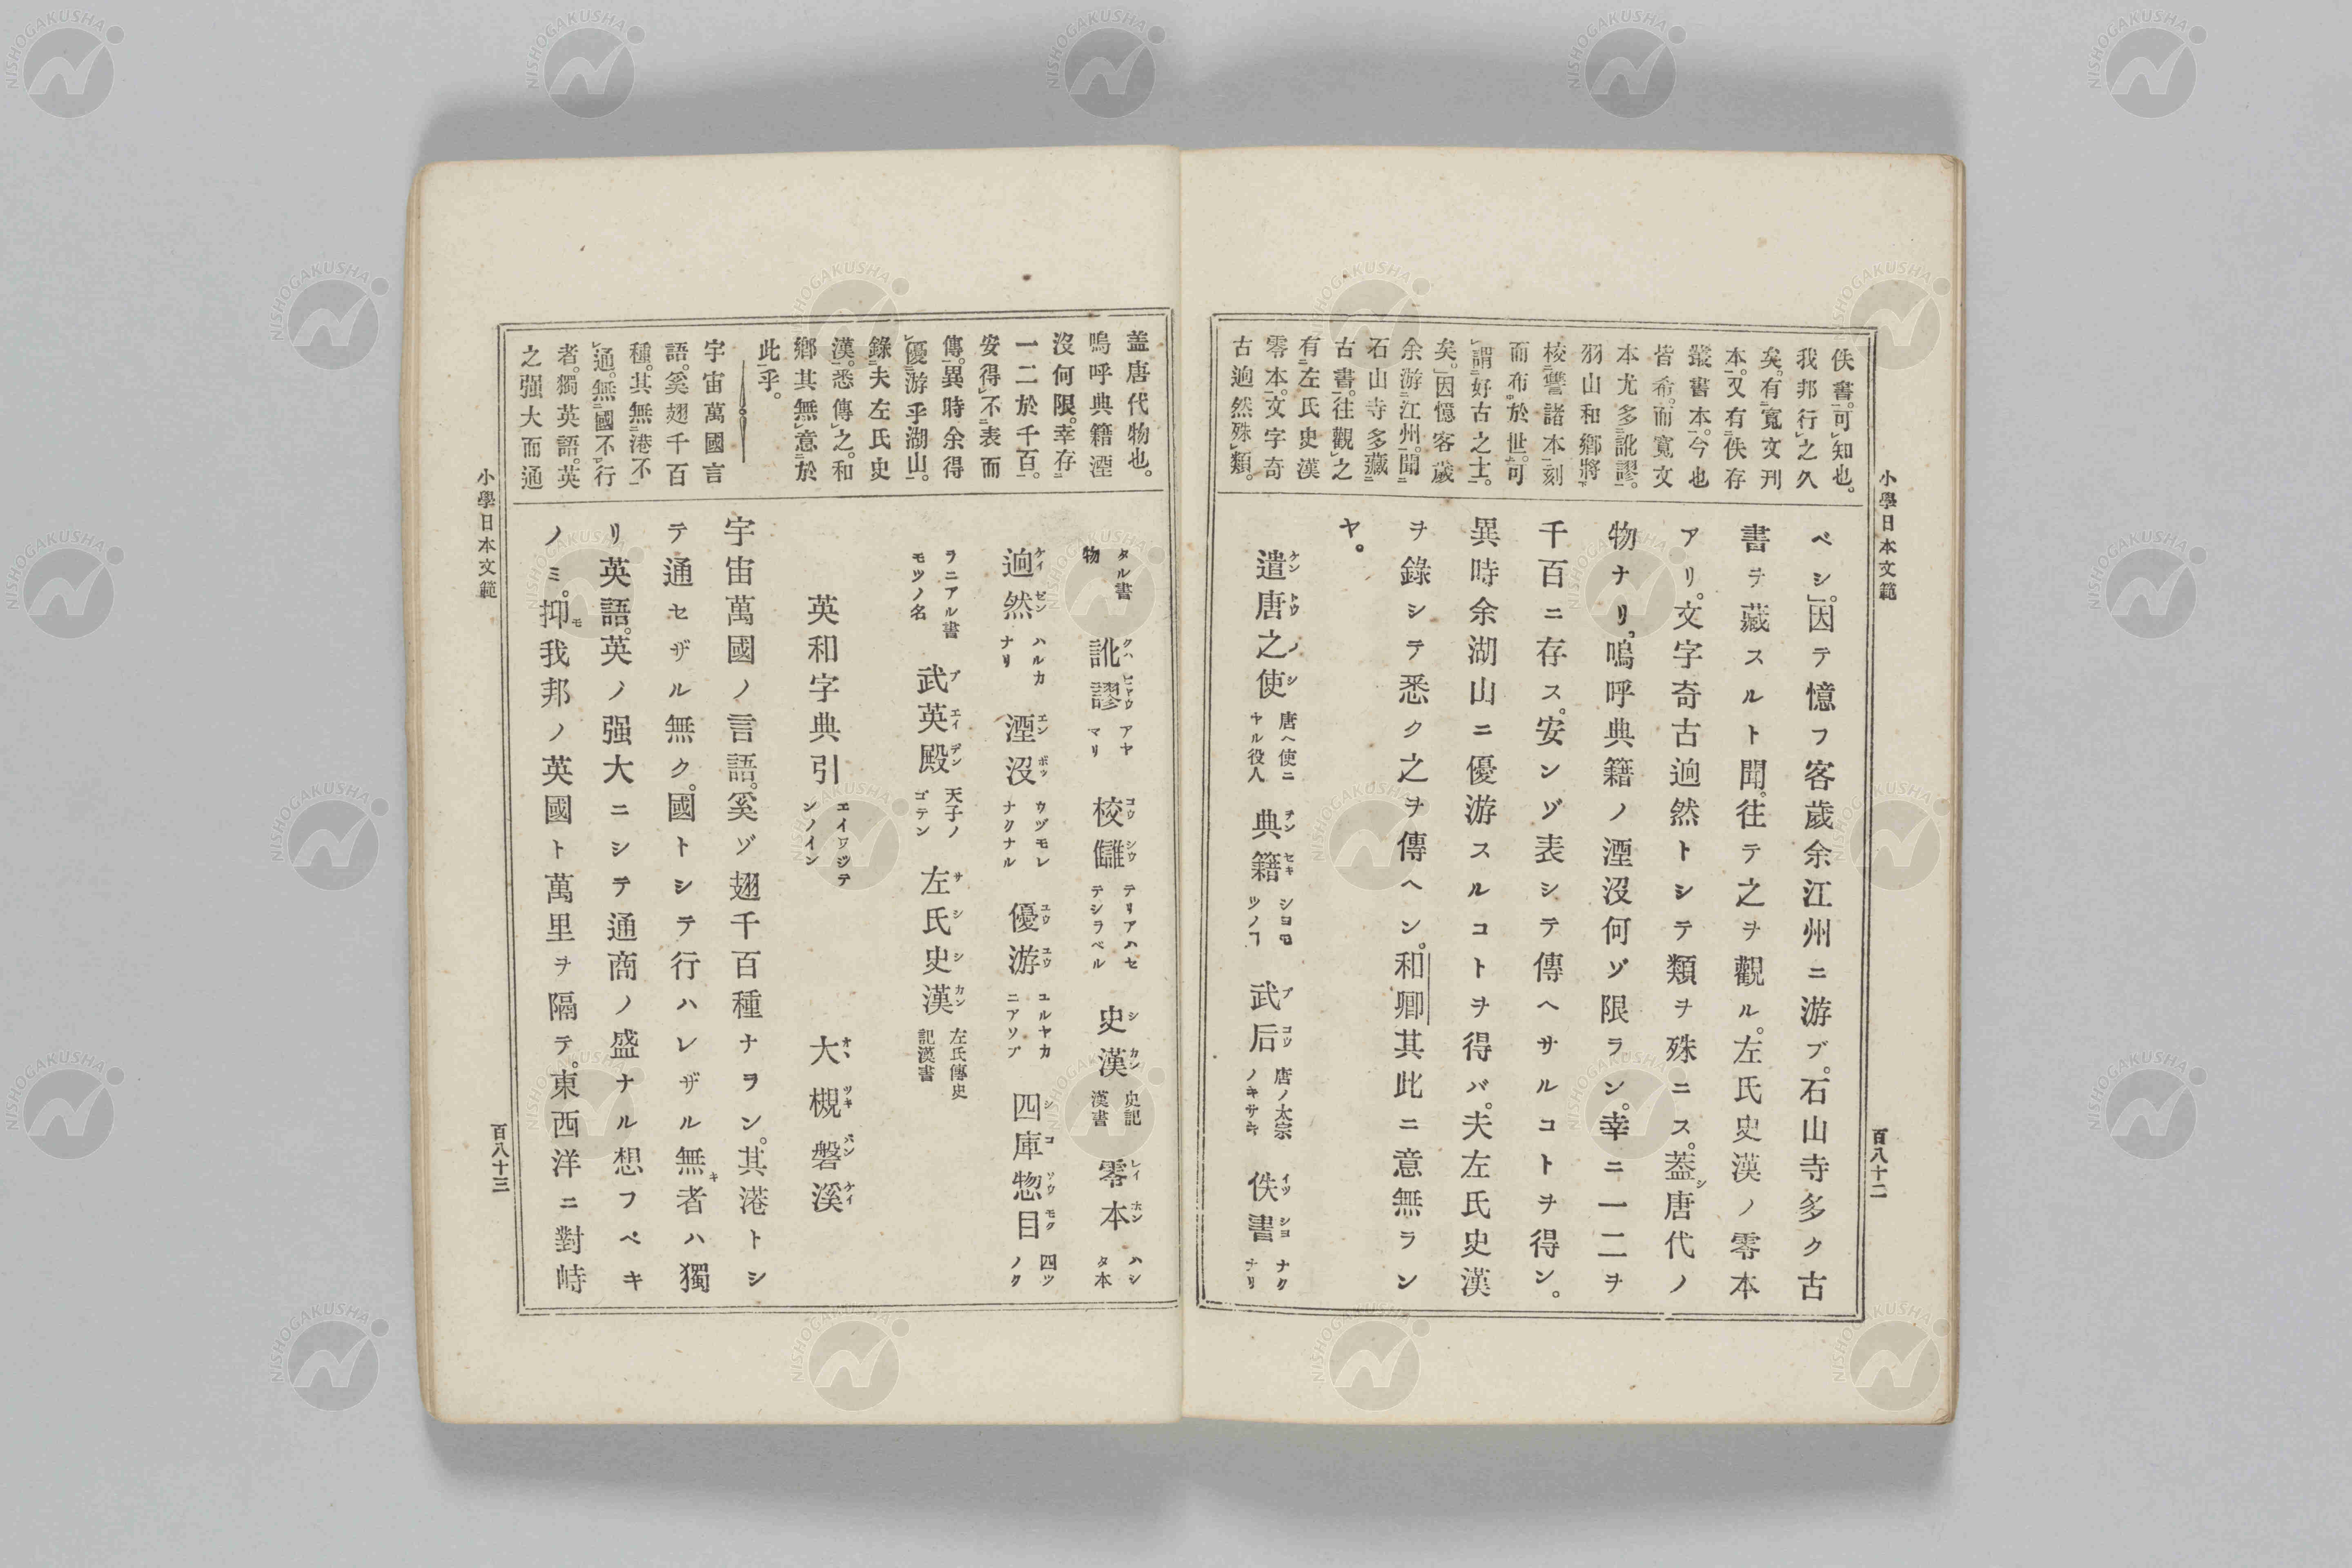 小學日本文範
百八十二
佚書。可知也。
我邦行之久
矣。有寬文刊
本。又有佚存
叢書本。今也
皆希。而寬文
本尤多訛謬。
羽山和鄉將
校讐諸本刻
而布於世。可
謂好古之士
矣。因憶客歲
余游江州。聞
石山寺多藏
古書。往觀之
有左氏史漢
零本。文字奇
古逈然殊類。
ベシ。」因テ憶フ客歲余江州ニ游ブ。石山寺多ク古
書ヲ藏スルト聞。往テ之ヲ觀ル。左氏史漢ノ零本
アリ。文字奇古逈然トシテ類ヲ殊ニス。蓋シ唐代ノ
物ナリ。嗚呼典籍ノ湮沒何ゾ限ラン。幸ニ一二ヲ
千百ニ存ス。安ンゾ表シテ傳ヘサルコトヲ得ン。
異時余湖山ニ優游スルコトヲ得バ。夫左氏史漢
ヲ錄シテ悉ク之ヲ傳ヘン。和卿其此ニ意無ラン
ヤ。
遣唐之使 ケントウノシ 唐ヘ使ニヤル役人 典籍 テンセキ シヨモツノヿ 武后 ブコウ 唐ノ太宗ノキサキ 佚書 イツシヨ ナクナリ
蓋唐代物也。
嗚呼典籍湮
沒何限。幸存
一二於千百。
安得不表而
傳。異時余得
優游乎湖山。
錄夫左氏史
漢。悉傳之。和
鄉其無意於
此乎。
宇宙萬國言
語。奚翅千百
種。其無港不
通。無國不行
者。獨英語。英
之强大而通
タル書物 訛謬 クハビヤウ アヤマリ 校讎 コウシウ テリアハセテシラベル 史漢 シカン 史記漢書 零本 レイホン ハシタ本
逈然 ケイゼン ハルカナリ 湮沒 エンボツ ウヅモレナクナル 優游 ユウユウ ユルヤカニアソブ 四庫惣目 シコソウモク 四ツノク
ラニアル書モツノ名 武英殿 ブエイデン 天子ノゴテン 左氏史漢 サシシカン 左氏傳史記漢書
英和字典引 エイワジテンノイン 大槻磐溪 オヽツキバンケイ
宇宙萬國ノ言語。奚ゾ翅千百種ナヲン。其港トシ
テ通セザル無ク。國トシテ行ハレザル無キ者ハ獨
リ英語。英ノ强大ニシテ通商ノ盛ナル想フベキ
ノミ。抑モ我邦ノ英國ト萬里ヲ隔テ。東西洋ニ對峙
小學日本文範
百八十三
NISHOGAKUSHA